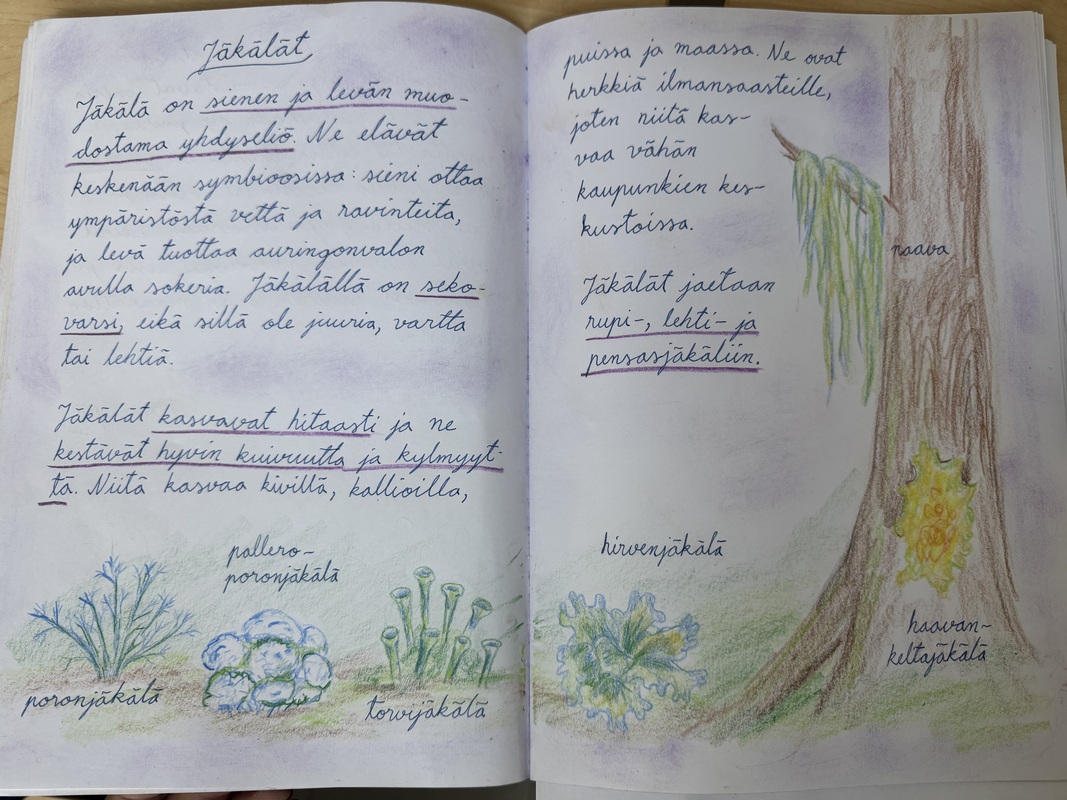 Jäkälät
Jäkälä on sienen ja levän muo-
dostama yhdyseliö. Ne elävät
keskenään symbioosissa: sieni ottaa
ympäristöstä vettä ja ravinteita,
ja levä tuottaa auringonvalon
avulla sokeria. Jäkälällä on seko-
varsi, eikä sillä ole juuria, vartta
tai lehtiä.
Jäkälät kasvavat hitaasti ja ne
kestävät hyvin kuivuutta ja kylmyyt-
tä. Niitä kasvaa kivillä, kallioilla,
pallero-
poronjäkälä
poronjäkälä
torvijäkälä
puissa ja maassa. Ne ovat
herkkiä ilmansaasteille,
joten niitä kas-
vaa vähän
kaupunkien kes-
kustoissa.
naava
Jäkälät jaetaan
rupi-, lehti- ja
pensasjäkäliin.
hirvenjäkälä
haavan-
keltajäkälä